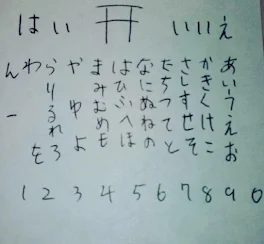 はい いいえ
あいうえお
かきくけこ
さしすせそ
たちつてと
なにぬねの
はひふへほ
まみむめも
や ゆ よ
らりるれろ
わ を
ん ー
1 2 3 4 5 6 7 8 9 0